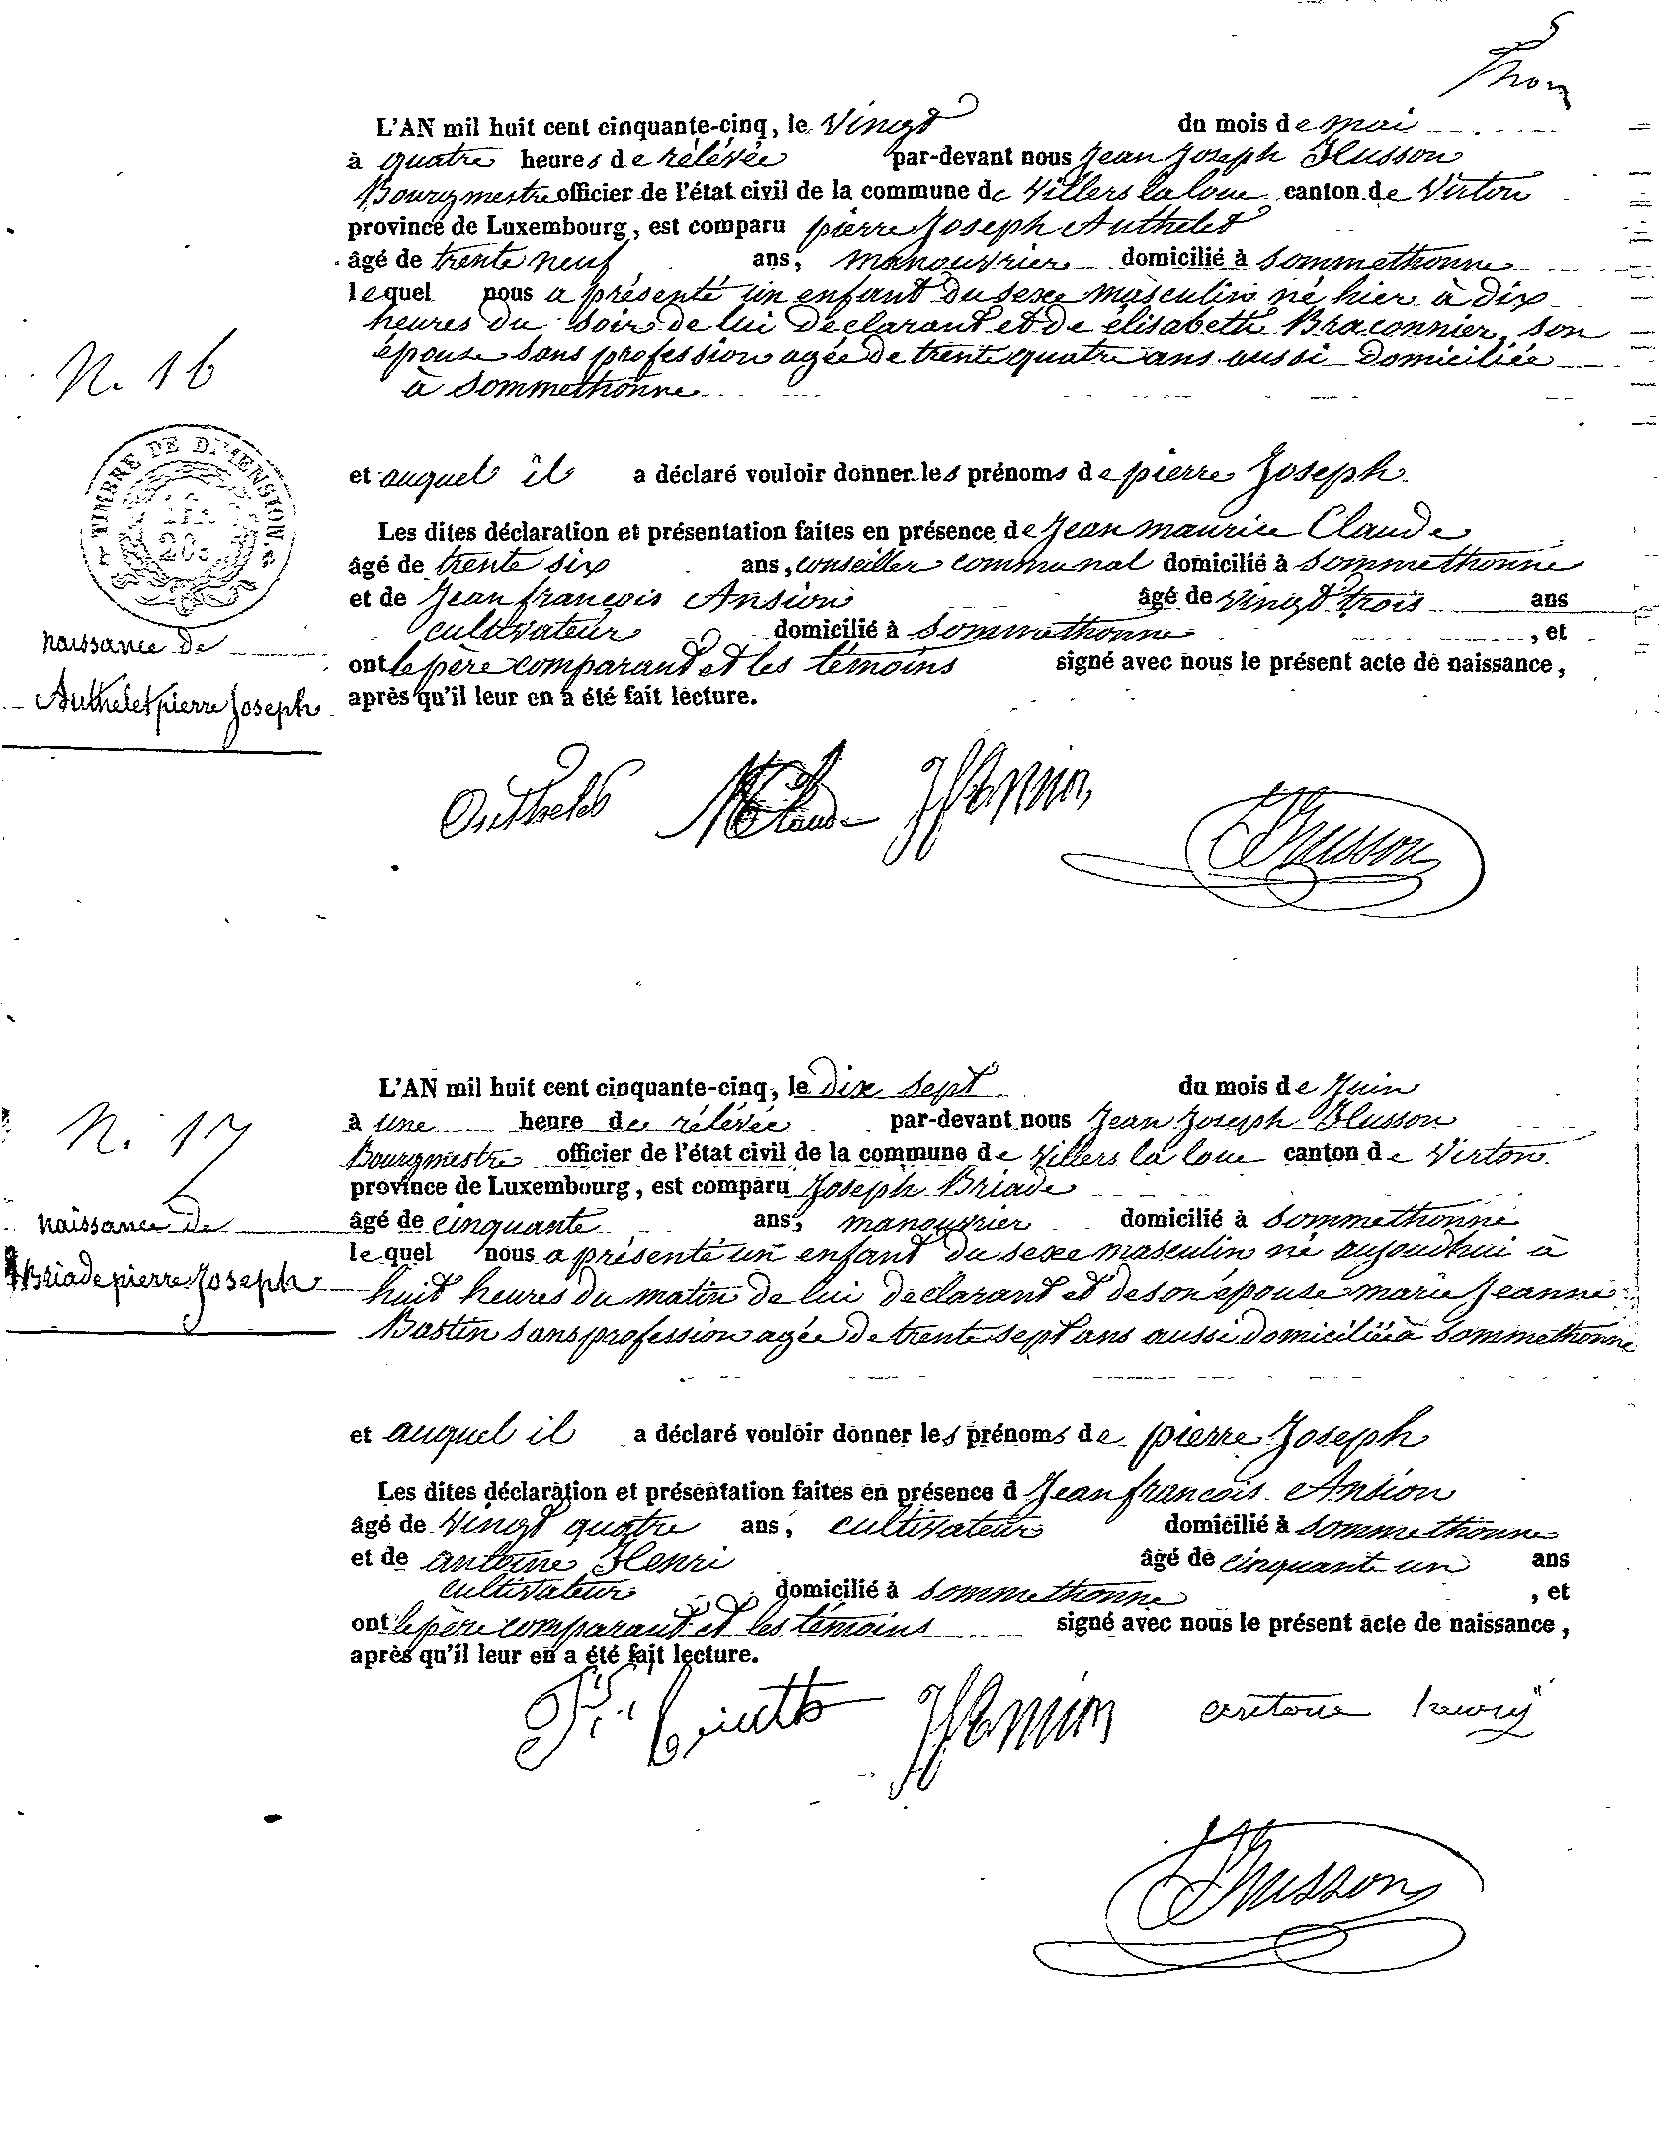 Thon
L'AN mil huit cent cinquante-cinq, le vingt du mois de mai
à quatre heures de rélévée par-devant nous Jean Joseph Husson
Bourgmestre officier de l'état civil de la commune de Villers la loue canton de Virton
province de Luxembourg, est comparu pierre Joseph Authelet
âgé de trente neuf ans, manouvrier domicilié à Sommethonne
lequel nous a présenté un enfant du sexe masculin né hier à dix
heures du soir de lui déclarant et de élisabeth Braconnier, son
épouse sans profession agée de trente quatre ans aussi domiciliée
N. 16
à Sommethonne
TIMBRE DE DIMENSION
et auquel il a déclaré vouloir donner les prénoms de pierre Joseph
Les dites déclaration et présentation faites en présence de Jean maurice Claude
âgé de trente six ans, conseiller communal domicilié à Sommethonne
et de Jean françois Ansion âgé de vingt trois ans
cultivateur domicilié à Sommethonne, et
naissance de
ont le père comparant et les témoins signé avec nous le présent acte de naissance,
Authelet pierre Joseph
après qu'il leur en a été fait lecture.
Authelet JMClaude JfAnsion
Husson
L'AN mil huit cent cinquante-cinq, le dix sept du mois de Juin
N. 17
à une heure de rélévée par-devant nous Jean Joseph Husson
Bourgmestre officier de l'état civil de la commune de Villers la loue canton de Virton
province de Luxembourg, est comparu Joseph Briade
naissance de
âgé de cinquante ans, manouvrier domicilié à Sommethonne
lequel nous a présenté un enfant du sexe masculin né aujourdhui à
Briade pierre Joseph
huit heures du matin de lui déclarant et de son épouse marie Jeanne
Bastin sans profession agée de trente sept ans aussi domiciliée à Sommethonne
et auquel il a déclaré vouloir donner les prénoms de pierre Joseph
Les dites déclaration et présentation faites en présence d Jean francois Ansion
âgé de vingt quatre ans, cultivateur domicilié à Sommethonne
et de antoine Henri âgé de cinquant un ans
cultivateur domicilié à Sommethonne, et
ont le père comparant et les témoins signé avec nous le présent acte de naissance,
après qu'il leur en a été fait lecture.
JfAnsion antoine henry
Husson